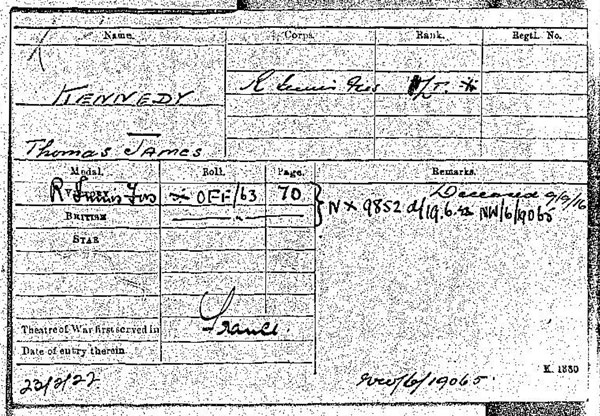 Name. Corps. Rank. Regtl. No.
KENNEDY R Innis Fus
Thomas James
Medal. Roll. Page. Remarks.
VICTORY R Innis Fus OFF/63 70 Deceased 9/9/16
BRITISH } NX 9852 d/19.6.22 NW/6/19065
STAR
Theatre of War first served in France.
Date of entry therein
K. 1380
23/2/22 NW/6/19065.